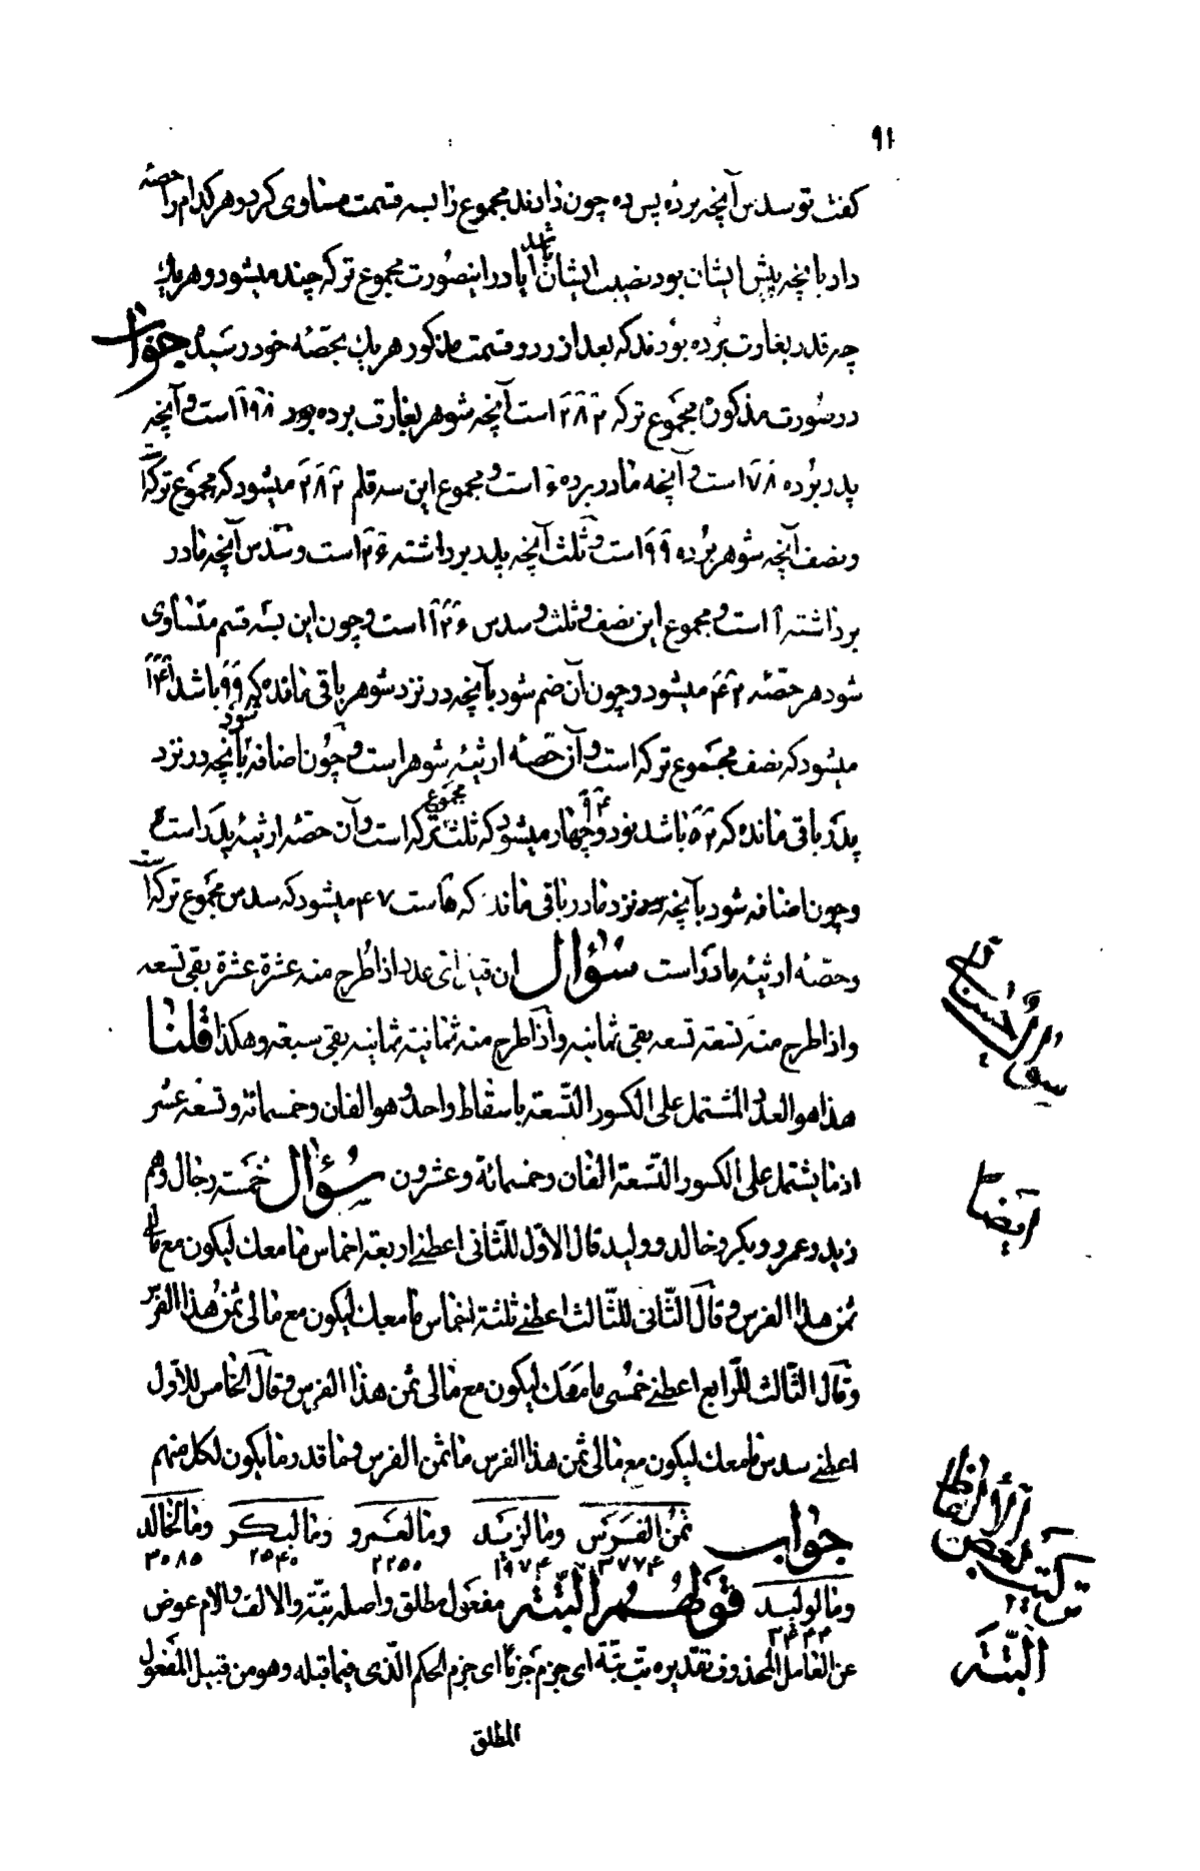 ٩١
كفت تو سدس آنچه برده پس ده چون دادند مجموع را بسه قسمت مساوى كرد و هر كدام را حصّه
داد با آنچه پيش ايشان بود نصيب ايشان شد آيا در اينصورت مجموع تركه چند ميشود و هر يك
چه قدر بغارت برده بودند كه بعد از رد و قسمت مذكور هر يك بحصّه خود رسيد جواب
در صورت مذكوره مجموع تركه ٢٨٢ است آنچه شوهر بغارت برده بود ١٩٨ است و آنچه
پدر برده ٧٨ است و آنچه مادر برده ٦ است و مجموع اين سه قلم ٢٨٢ ميشود كه مجموع تركه است
و نصف آنچه شوهر برده ٩٩ است و ثلث آنچه پدر برداشته ٢٦ است و سدس آنچه مادر
برداشته ١ است و مجموع اين نصف و ثلث و سدس ١٢٦ است و چون اين بسه قسم متساوى
شود هر حصّه ٤٢ ميشود و چون آن ضم شود بآنچه در نزد شوهر باقى مانده كه ٩٩ باشد ١٤١
ميشود كه نصف مجموع تركه است و آن حصّه ارثيّه شوهر است و چون اضافه شود بآنچه در نزد
پدر باقى مانده كه ٥٢ باشد نود و چهار ٩٤ ميشود كه ثلث مجموع تركه است و آن حصّه ارثيّه پدر است
و چون اضافه شود بآنچه در نزد مادر باقى ماند كه ٥ است ٤٧ ميشود كه سدس مجموع تركه است
و حصّه ارثيّه مادر است سؤال ان قيل اى عدد اذا طرح منه عشرة عشرة بقى تسعه
و اذا طرح منه تسعة تسعه بقى ثمانيه و اذا طرح منه ثمانية ثمانيه بقى سبعه و هكذا قلنا
هذا هو العدد المشتمل على الكسور التّسعة باسقاط واحد و هو الفان و خمسمائة و تسعة عشر
اذ ما يشتمل على الكسور التّسعة الفان و خمسمائة و عشرون سؤال خمسة رجال و هم
زيد و عمرو و بكر و خالد و وليد قال الاوّل للثّانى اعطنى اربعة اخماس ما معك ليكون مع مالى
ثمن هذا الفرس و قال الثّانى للثّالث اعطنى ثلثة اخماس ما معك ليكون مع مالى ثمن هذا الفرس
و قال الثّالث للرّابع اعطنى خمسى ما معك ليكون مع مالى ثمن هذا الفرس و قال الخامس للاوّل
اعطنى سدس ما معك ليكون مع مالى ثمن هذا الفرس ما ثمن الفرس و ما قدر ما يكون لكل منهم
جواب ثمن الفرس و ما لزيد و ما لعمرو و ما لبكر و ما لخالد
٣٧٧٤ ١٩٧٤ ٢٢٥٠ ٢٥٤٠ ٣٠٨٥
و ما لوليد قولهم البتّه مفعول مطلق و اصله بتّه و الالف و اللام عوض
عن العامل المحذوف تقديره بتّ بتّة اى جزم جزماً اى جزم الحكم الّذى فيما قبله و هو من قبيل المفعول
المطلق
سؤال حسن
ايضاً
البتّة